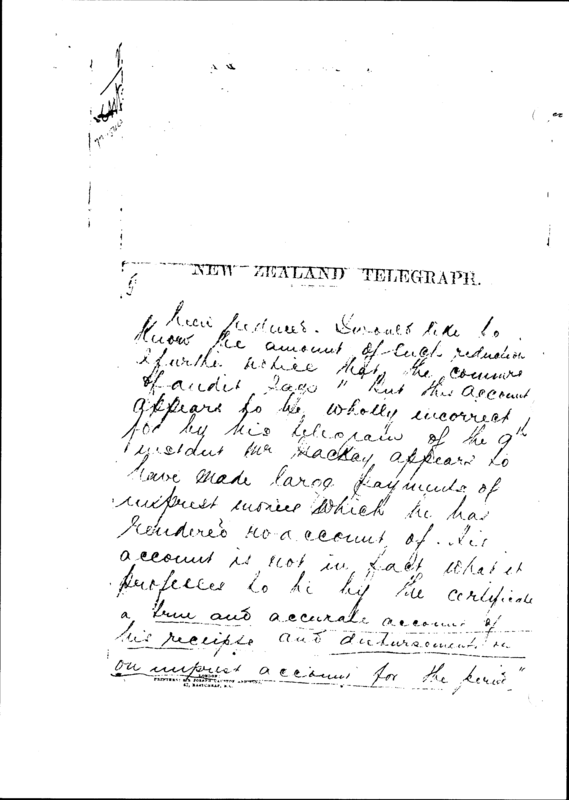 NEW ZEALAND TELEGRAPH.
been reduced. I would like to
know the amount of such reduction
I further notice that the commrs
of audit says " But this account
appears to be wholly incorrect
for by his telegram of the 9th
instant Mr Mackay appears to
have made large payments of
imprest monies which he has
rendered no account of. His
account is not in fact what it
professes to be by the certificate
a true and accurate account of
his receipts and disbursements on
on imprest account for the period"
LONDON: